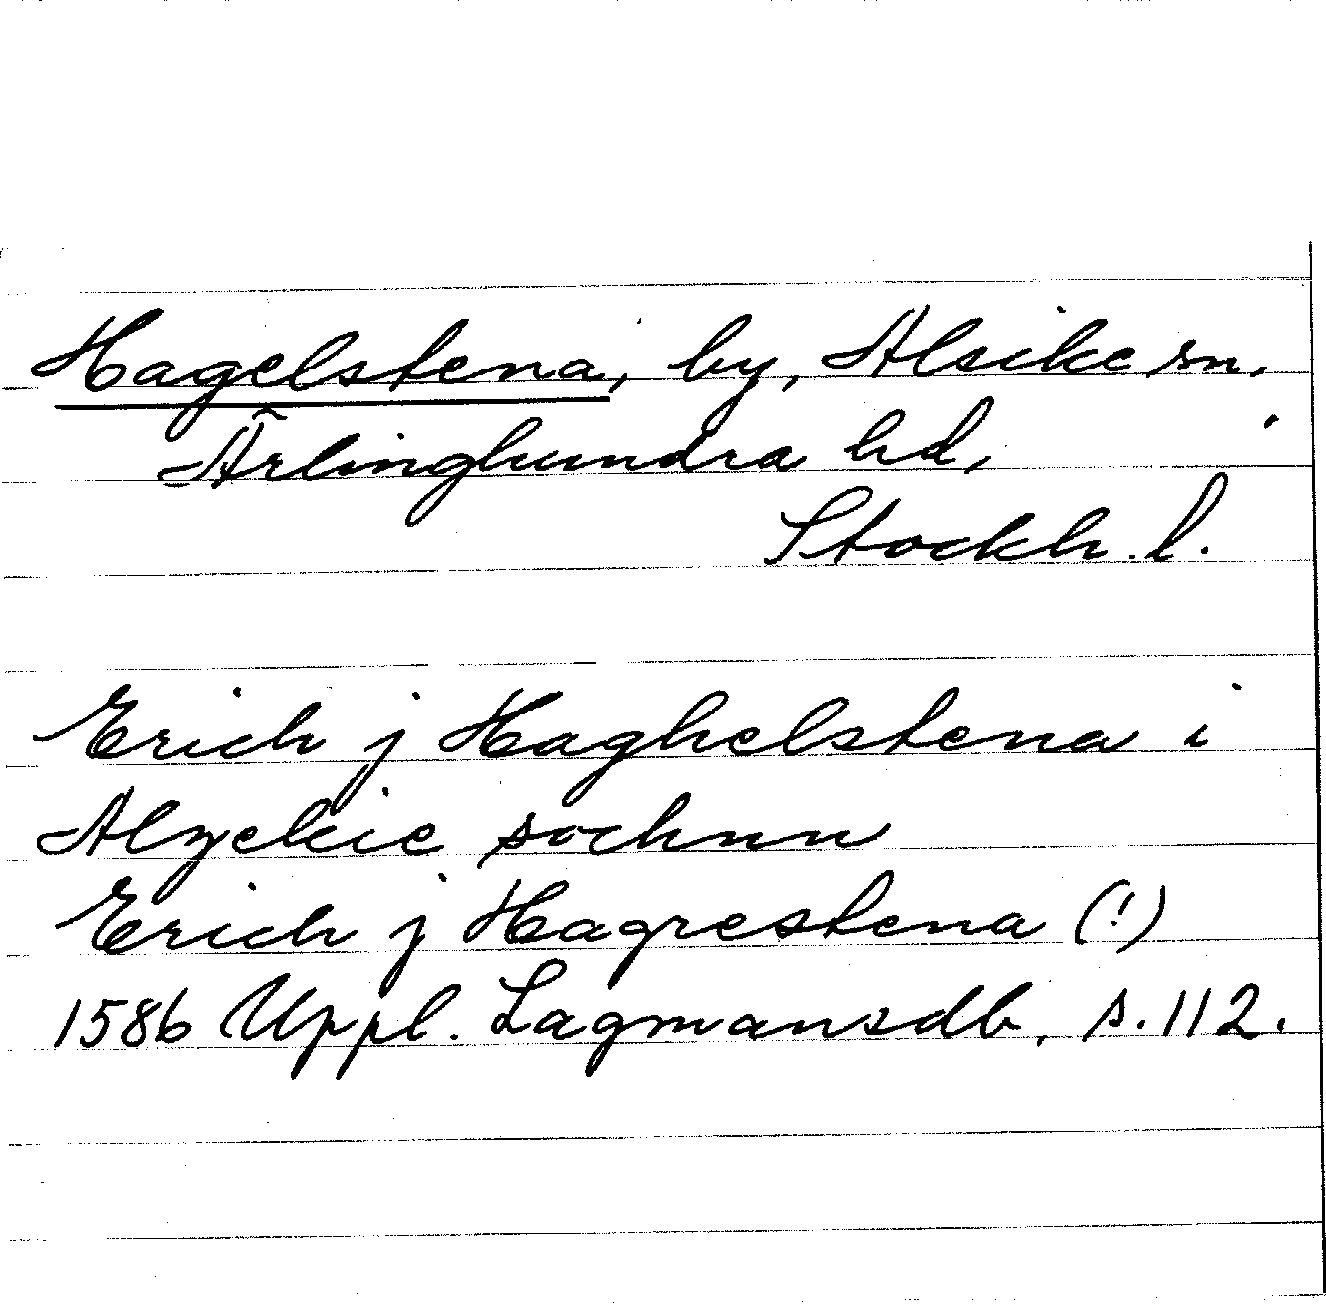 Hagelstena, by, Alsike sn.
Ärlinghundra hd,
Stockh. l.
Erich j Haghelstena i
Alzekie sochnn
Erich j Hagrestena (!)
1586 Uppl. Lagmansdb, s. 112.